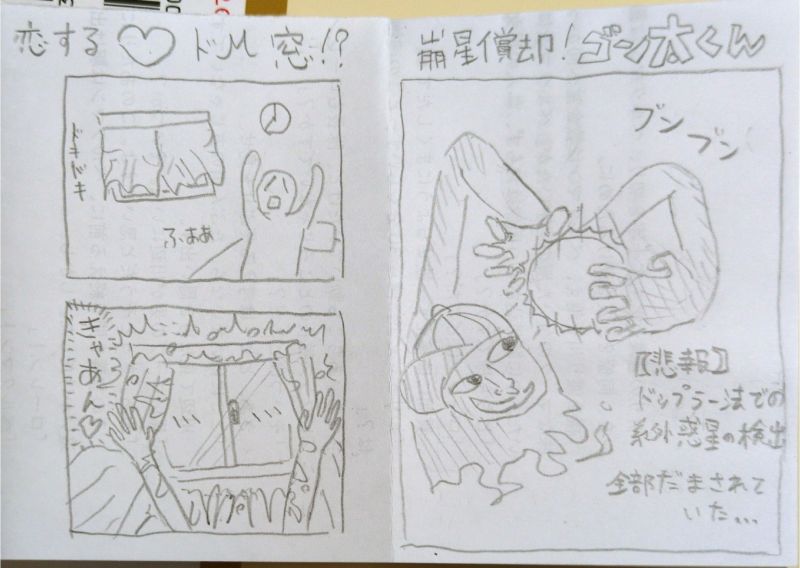 恋する♡ドM 窓!?
ドキドキ
ふぁぁ
きゃあん♡
崩星償却!ゴン太くん
ブン
ブン
【悲報】
ドップラー法での
系外惑星の検出
全部だまされて
いた...